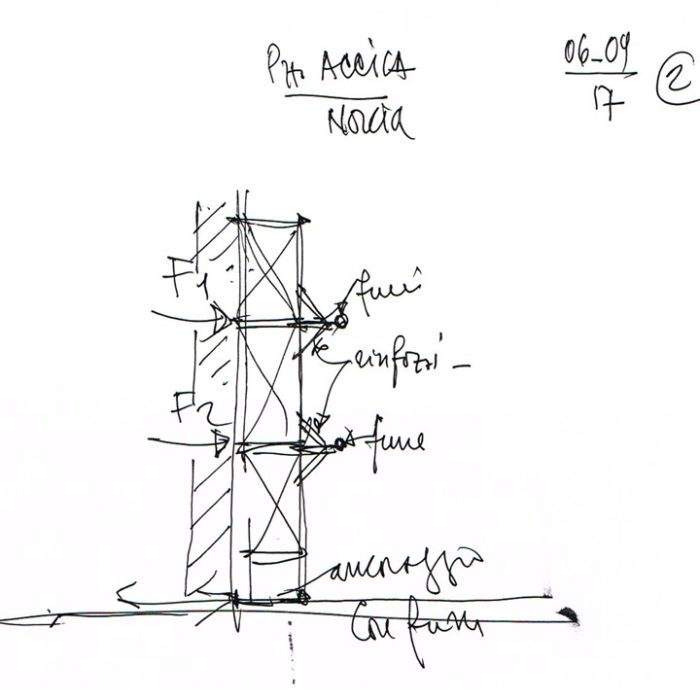 P.tta ACCICA
Norcia
06-09
17
2
F1
funi
rinforzi -
F2
fune
ancoraggio
con funi